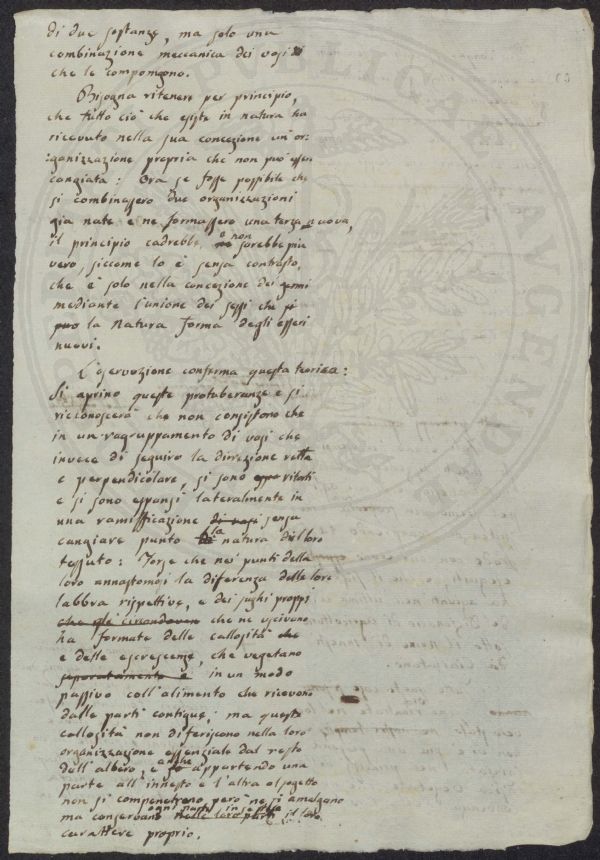 di due sostanze, ma solo una
combinazione meccanica dei vasi
che le compongono.
Bisogna ritenere per principio,
che tutto ciò che esiste in natura ha
ricevuto nella sua concezione un or-
:ganizzazione propria che non può esser
cangiata: Ora se fosse possibile che
si combinassero due organizzazioni
gia nate e ne formassero una terza nuova,
il principio cadrebbe, o non sarebbe piu
vero, siccome lo è senza contrasto,
che è solo nella concezione dei germi
mediante l'unione dei sessi che
la Natura forma degli esseri
nuovi.
L'osservazione conferma questa teorica:
Si aprino queste protuberanze e si
riconoscerà che non consistono che
in un ragruppamento di vasi che
invece di seguire la direzione retta
e perpendicolare, si sono
e si sono espansi lateralmente in
una ramifficazione di vasi senza
cangiare punto la natura del loro
tessuto: Forse che nei punti della
loro annastomosi la diferenza delle loro
labbra rispettive, e dei sughi proppi
che gle circondaven che ne uscivano
ha formate delle callosità che
e delle escrescenze, che vegetano
separatamente e in un modo
passivo coll'alimento che ricevono
dalle parti contigue; ma queste
callosità non diferiscono nella loro
organizzazione essenziale dal resto
dell'albero; e anche appartendo una
parte all'innesto e l'altra al sogetto
non si compenetrano però ne si amalgano
ma conservano ogni parte in se stessa nelle loro parti il loro
carattere proprio.